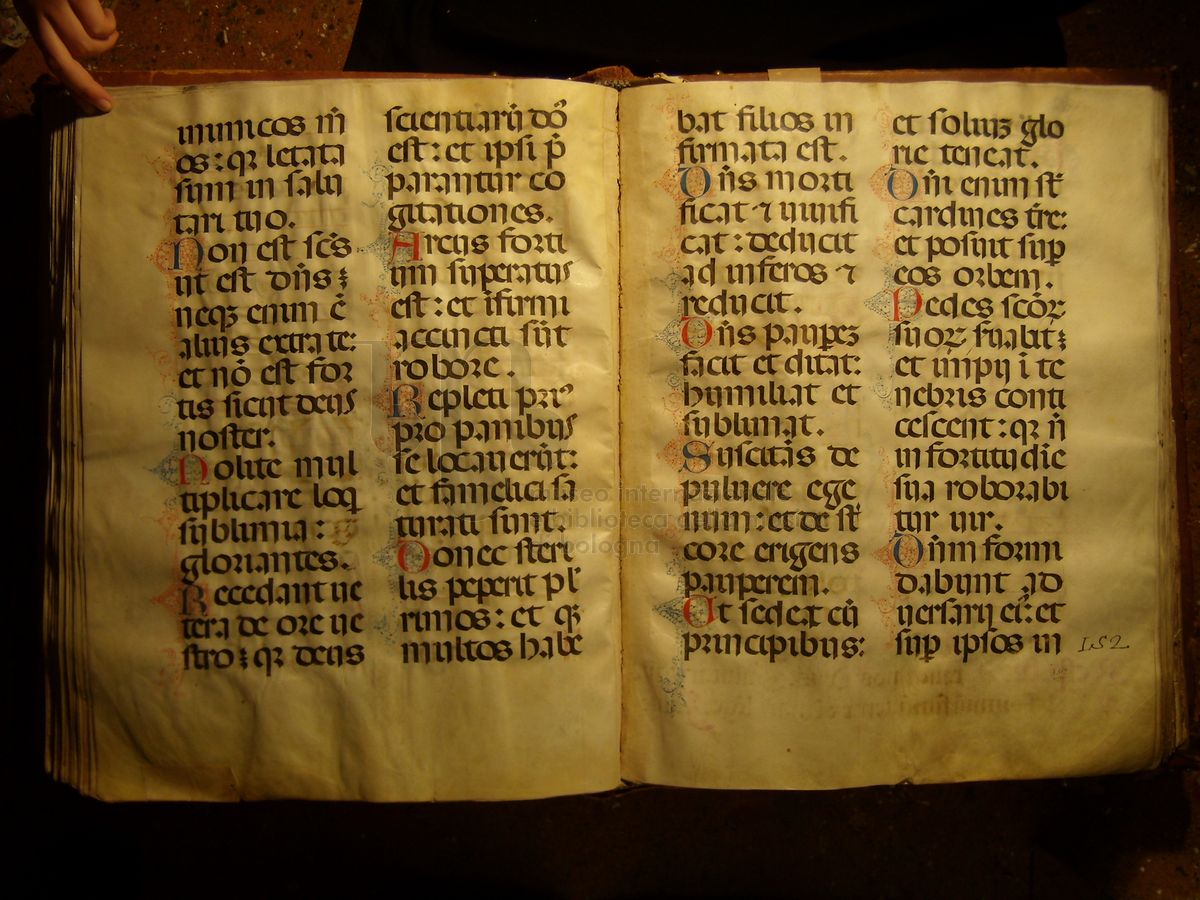 inimicos m̄
os: qꝛ letata
sum in salu
tari tuo.
Non est scs̄
ut est dn̄s:
neqꝫ enim ē
alius extra te:
et nō est for
tis sicut deus
noster.
Nolite mul
tiplicare loq
sublimia:
gloriantes.
Recedant ue
tera de ore ue
stro: qꝛ deus
scientiaruȷ̄ dō
est: et ipsi p̄
parantur co
gitationes.
Arcus forti
um superatus
est: et ifirmi
accincti sūt
robore.
Repleti priꝰ
pro panibus
se locauerūt:
et famelici sa
turati sunt.
Donec steri
lis peperit pl̄
rimos: et qͣ
multos habe
bat filios in
firmata est.
Dn̄s morti
ficat ⁊ uiuifi
cat: deducit
ad inferos ⁊
reducit.
Dn̄s pauꝑeꝫ
facit et ditat:
humiliat et
subliuiat.
Suscitās de
puluere ege
num: et de st̄
core erigens
pauperem.
Ut sedeat cū
principibus:
et soliuꝫ glo
rie teneat.
Dn̄i enim st̄
cardines t̄re:
et posuit suꝑ
eos orbem.
Pedes scōꝝ
suoꝝ ſ̄uabit:
et impij i te
nebris conti
cescent: qꝛ n̄
in fortitudīe
sua roborabi
tur uir.
Dn̄m formi
dabunt ad
uersarij eiꝰ: et
suꝑ ipsos in
152
museo intern
biblioteca d
bologna